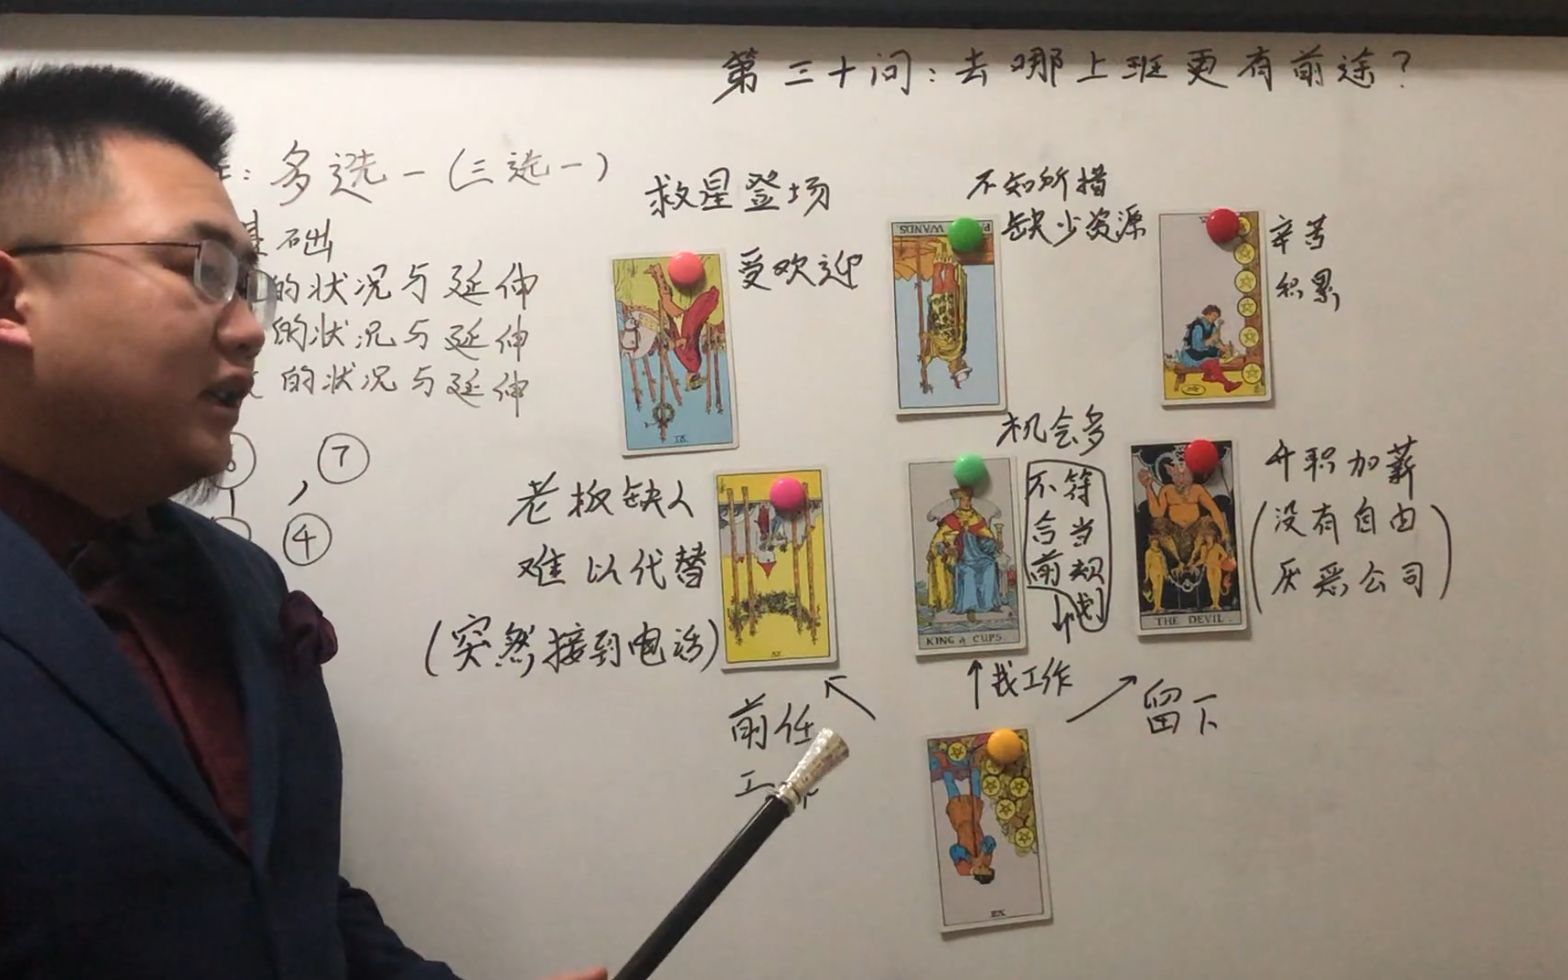 第三十问：去哪上班更有前途？
：多选一（三选一）
基础
的状况与延伸
的状况与延伸
的状况与延伸
⑦
④
救星登场
受欢迎
不知所措
缺少资源
辛苦
积累
WANDS
老板缺人
难以代替
（突然接到电话）
IX
机会多
不符
合当
前规
划
KING of CUPS
升职加薪
（没有自由
厌恶公司）
THE DEVIL
前任
找工作
留下